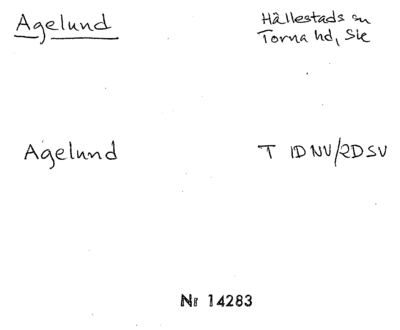 Agelund
Hällestads sn
Torna hd, Ske
Agelund
T 1D NV/2D SV
Nr 14283